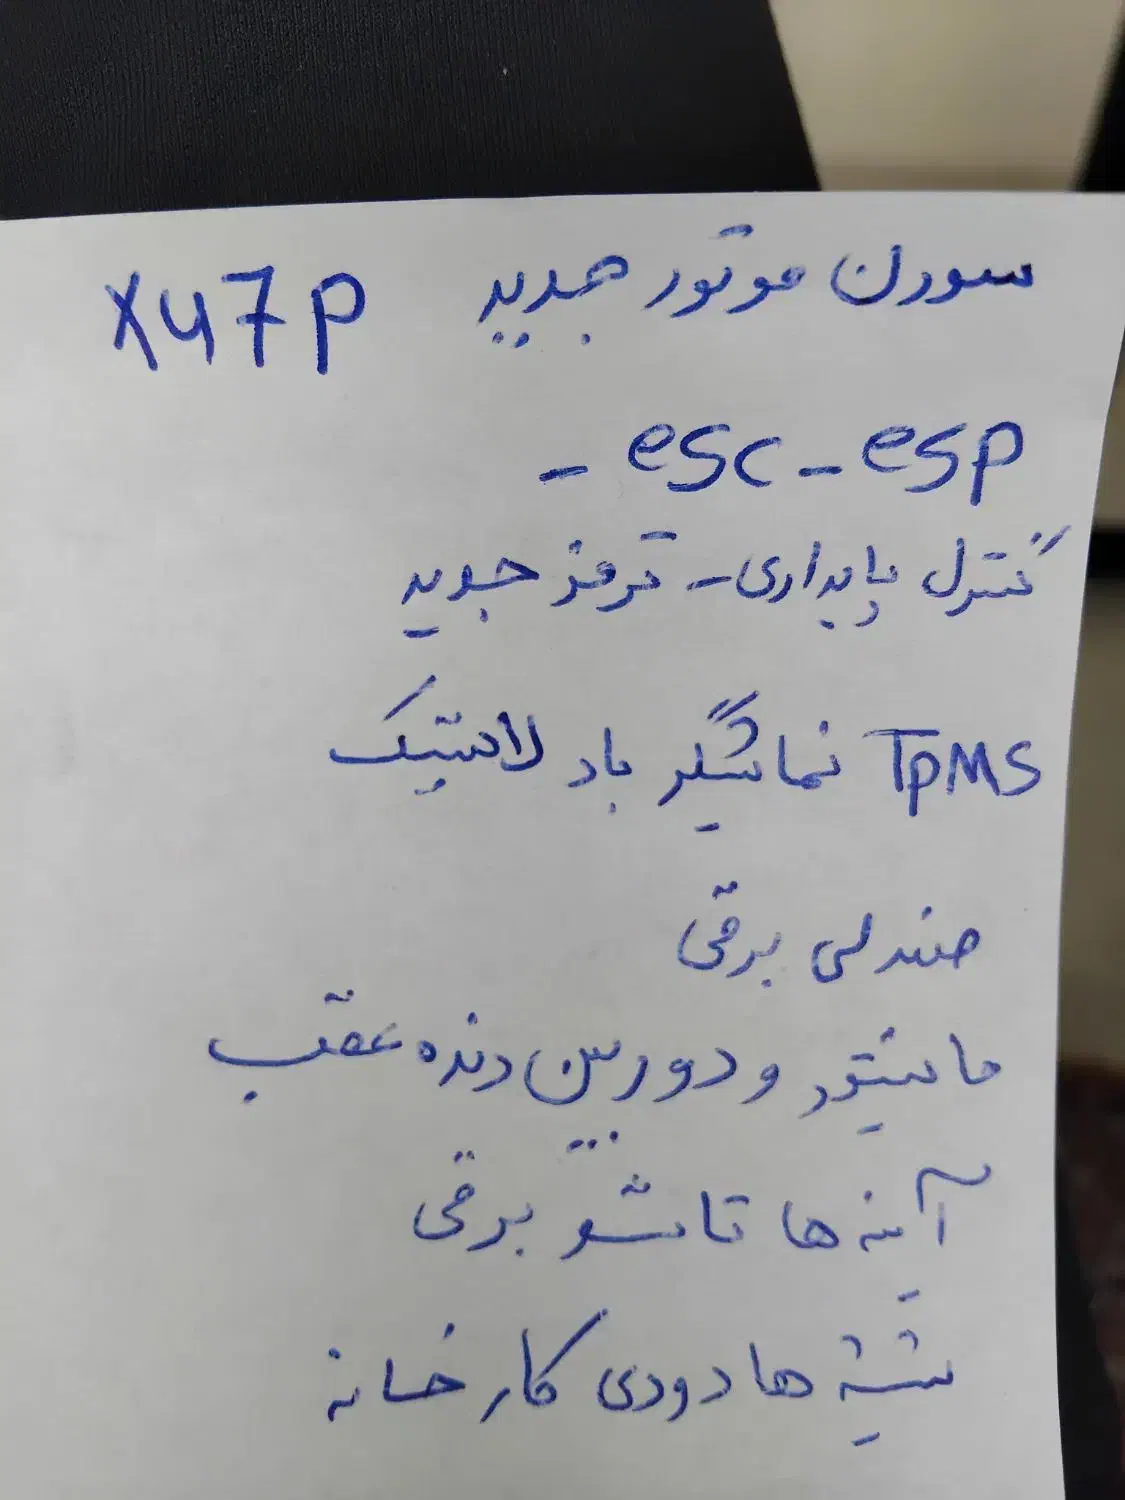 سورن موتور جدید X47P
esc - esp -
کنترل پایداری - ترمز جدید
TPMS نمایشگر باد لاستیک
صندلی برقی
مانیتور و دوربین دنده عقب
آینه ها تاشو برقی
شیشه ها دودی کارخانه